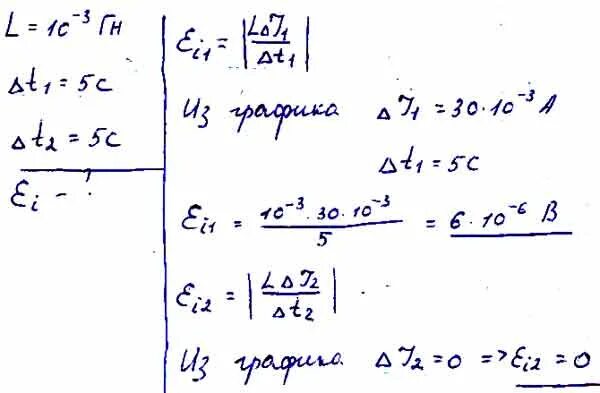 L = 10⁻³ Гн
Δt₁ = 5с
Δt₂ = 5с
Ɛi – ?
Ɛi₁ = |LΔI₁/Δt₁|
Из графика ΔI₁ = 30·10⁻³ А
Δt₁ = 5с
Ɛi₁ = 10⁻³·30·10⁻³/5 = 6·10⁻⁶ В
Ɛi₂ = |LΔI₂/Δt₂|
Из графика ΔI₂ = 0 => Ɛi₂ = 0